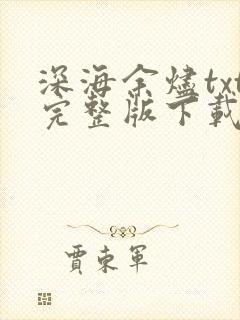 深海余燼txt
完整版下載
賈東軍